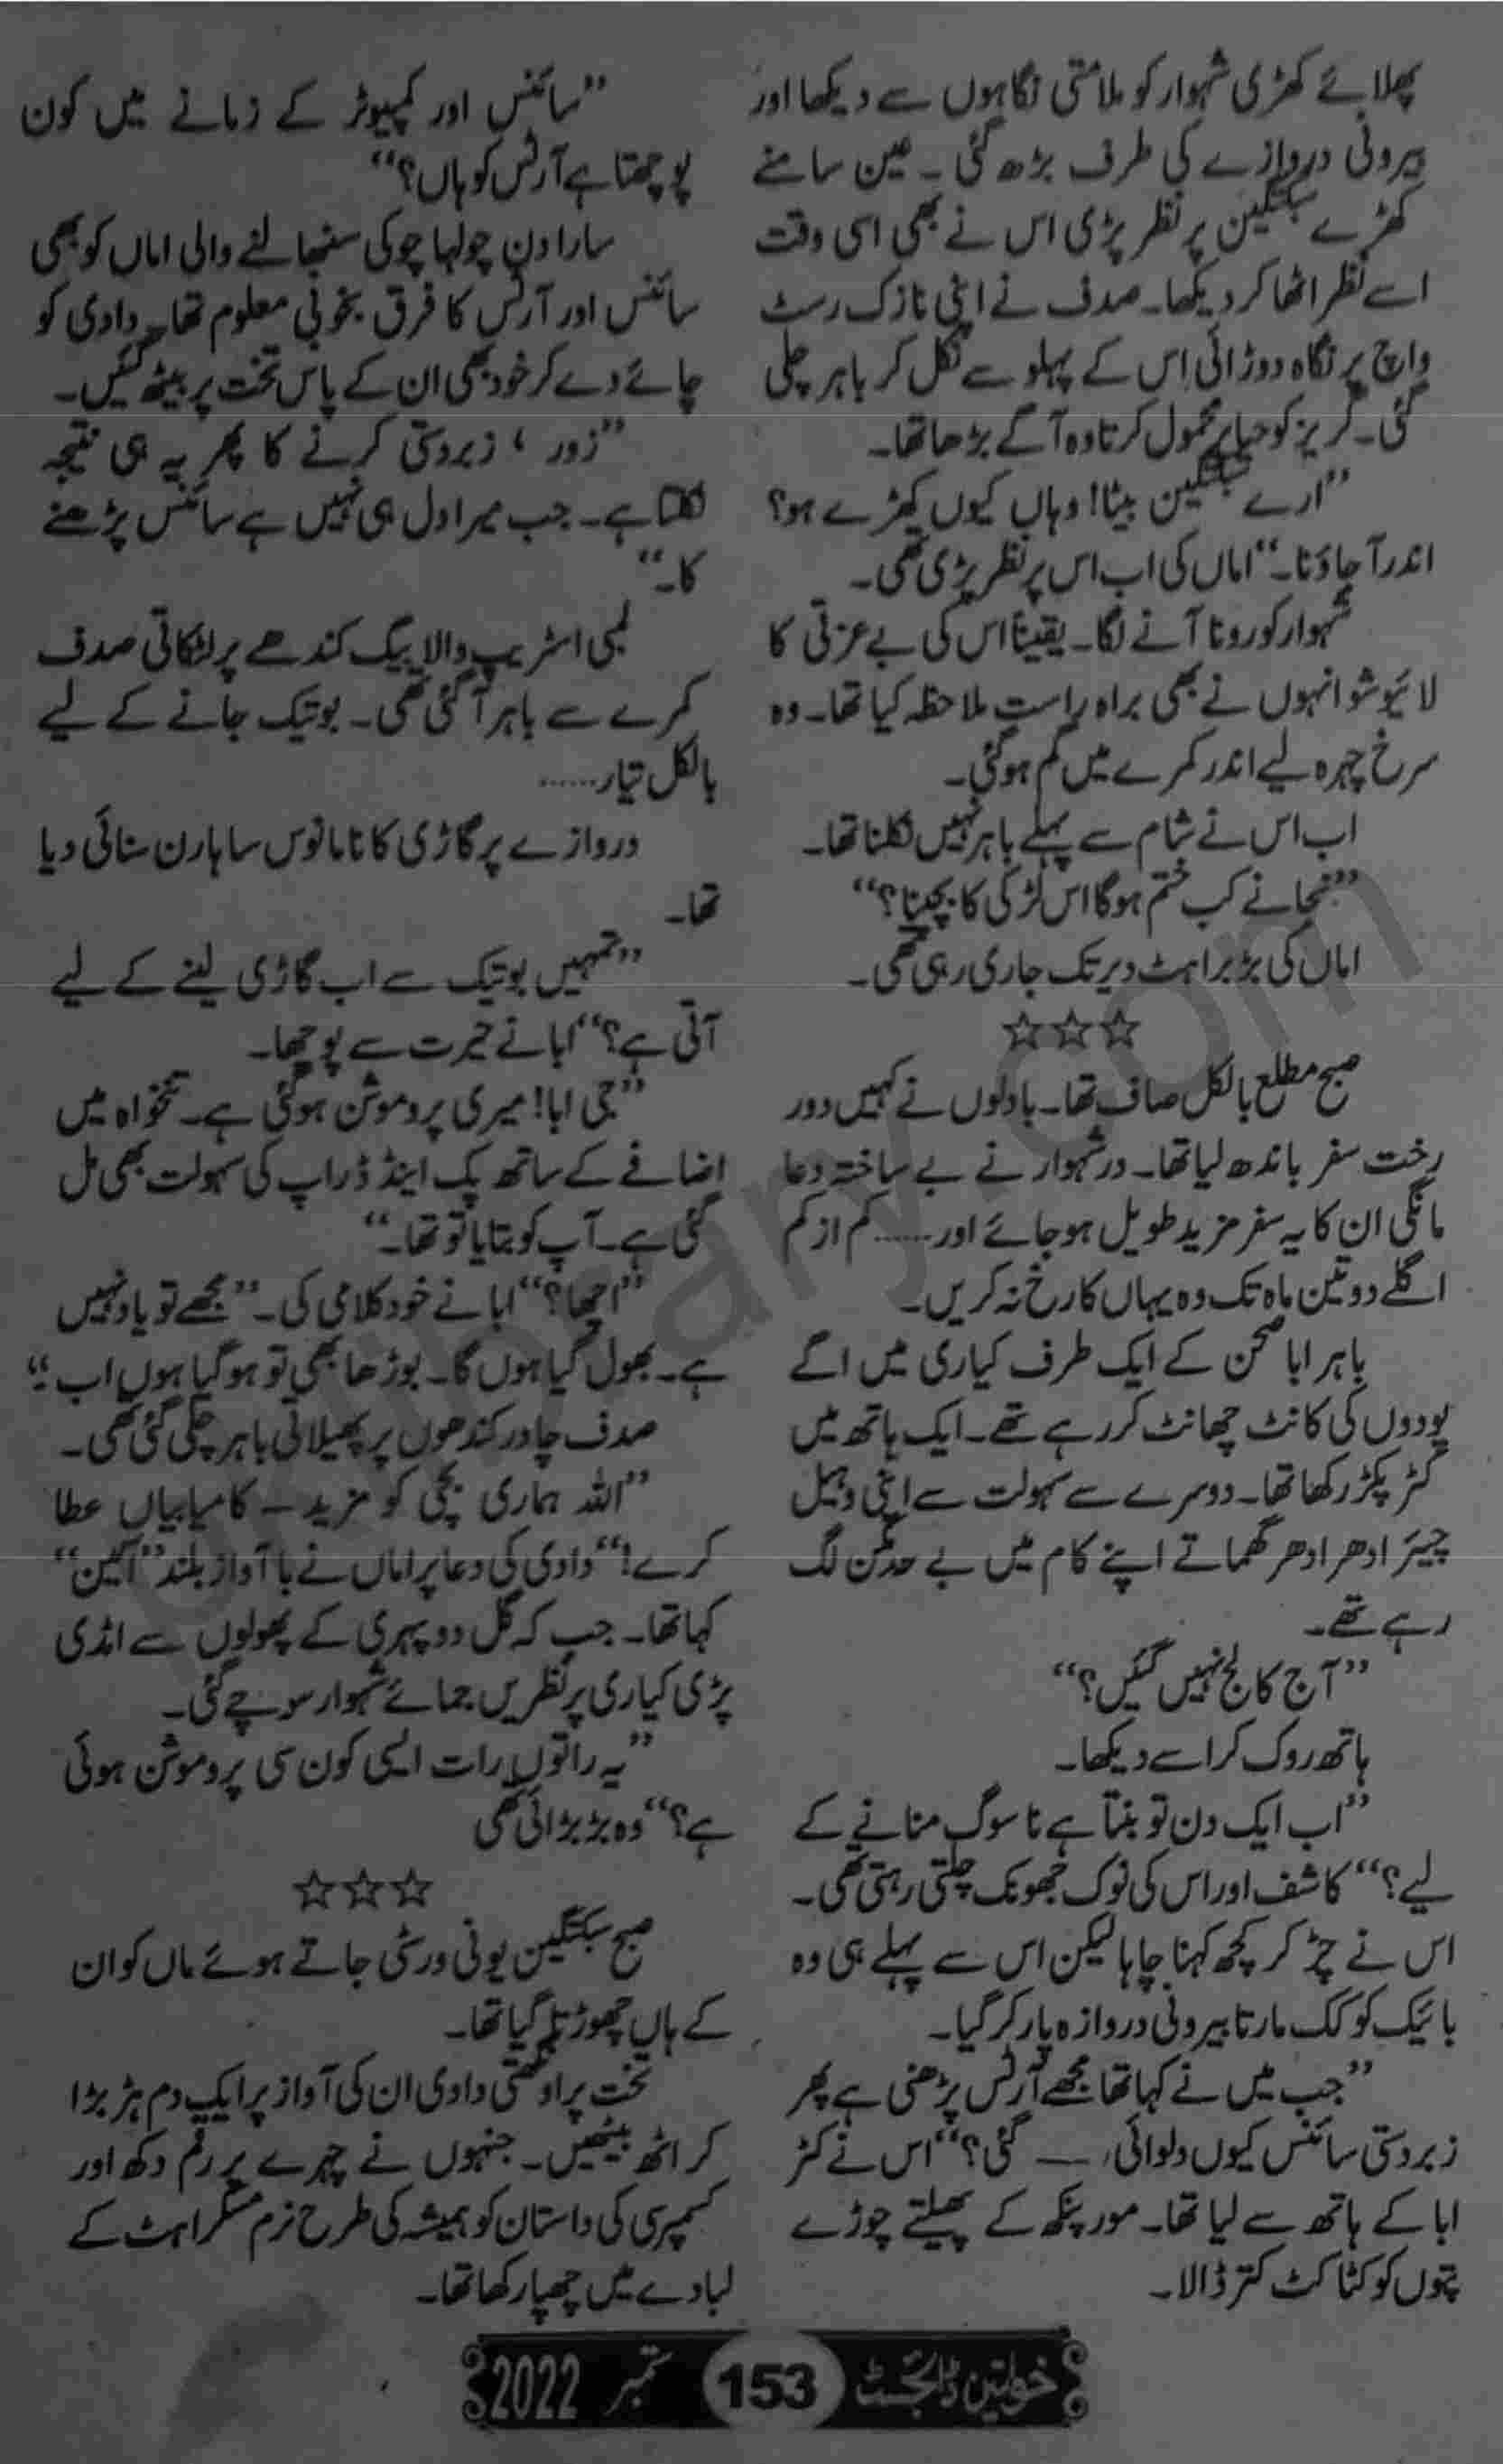 پھلائے کھڑی شہوار کو ملامتی نگاہوں سے دیکھا اور
بیرونی دروازے کی طرف بڑھ گئی۔ عین سامنے
کھڑے سبکتگین پر نظر پڑی اس نے بھی اسی وقت
اسے نظر اٹھا کر دیکھا۔ صدف نے اپنی نازک رسٹ
واچ پر نگاہ دوڑائی اس کے پہلو سے نکل کر باہر چلی
گئی۔ گریز کو حیا پر محمول کرتا وہ آگے بڑھا تھا۔
”ارے سبکتگین بیٹا! وہاں کیوں کھڑے ہو؟
اندر آ جاؤ نا۔“ اماں کی اب اس پر نظر پڑی تھی۔
شہوار کو رونا آنے لگا۔ یقیناً اس کی بے عزتی کا
لائیو شو انہوں نے بھی براہ راست ملاحظہ کیا تھا۔ وہ
سرخ چہرہ لیے اندر کمرے میں گم ہو گئی۔
اب اس نے شام سے پہلے باہر نہیں نکلنا تھا۔
”نجانے کب ختم ہوگا اس لڑکی کا بچپنا؟“
اماں کی بڑبڑاہٹ دیر تک جاری رہی تھی۔
☆☆☆
صبح مطلع بالکل صاف تھا۔ بادلوں نے کہیں دور
رخت سفر باندھ لیا تھا۔ درشہوار نے بے ساختہ دعا
مانگی ان کا یہ سفر مزید طویل ہو جائے اور...... کم از کم
اگلے دو تین ماہ تک وہ یہاں کا رخ نہ کریں۔
باہر ابا صحن کے ایک طرف کیاری میں اگے
پودوں کی کانٹ چھانٹ کر رہے تھے۔ ایک ہاتھ میں
کٹر پکڑ رکھا تھا۔ دوسرے سے سہولت سے اپنی وہیل
چیئر ادھر ادھر گھماتے اپنے کام میں بے حد مگن لگ
رہے تھے۔
”آج کالج نہیں گئیں؟“
ہاتھ روک کر اسے دیکھا۔
”اب ایک دن تو بنتا ہے نا سوگ منانے کے
لیے؟“ کاشف اور اس کی نوک جھونک چلتی رہتی تھی۔
اس نے چڑ کر کچھ کہنا چاہا لیکن اس سے پہلے ہی وہ
بائیک کو کک مارتا بیرونی دروازہ پار کر گیا۔
”جب میں نے کہا تھا مجھے آرٹس پڑھنی ہے پھر
زبردستی سائنس کیوں دلوائی، — گئی؟“ اس نے کٹر
ابا کے ہاتھ سے لیا تھا۔ مور پنکھ کے پھیلتے چوڑے
پتوں کو کٹا کٹ کتر ڈالا۔
”سائنس اور کمپیوٹر کے زمانے میں کون
پوچھتا ہے آرٹس کو ہاں؟“
سارا دن چولہا چوکی سنبھالنے والی اماں کو بھی
سائنس اور آرٹس کا فرق بخوبی معلوم تھا۔ دادی کو
چائے دے کر خود بھی ان کے پاس تخت پر بیٹھ گئیں۔
”زور، زبردستی کرنے کا پھر یہ ہی نتیجہ
نکلتا ہے۔ جب میرا دل ہی نہیں ہے سائنس پڑھنے
کا۔“
لمبی اسٹریپ والا بیگ کندھے پر لٹکاتی صدف
کمرے سے باہر آ گئی تھی۔ بوتیک جانے کے لیے
بالکل تیار......
دروازے پر گاڑی کا نامانوس سا ہارن سنائی دیا
تھا۔
”تمہیں بوتیک سے اب گاڑی لینے کے لیے
آتی ہے؟“ ابا نے حیرت سے پوچھا۔
”جی ابا! میری پروموشن ہو گئی ہے۔ تنخواہ میں
اضافے کے ساتھ پک اینڈ ڈراپ کی سہولت بھی مل
گئی ہے۔ آپ کو بتایا تو تھا۔“
”اچھا؟“ ابا نے خود کلامی کی۔ ”مجھے تو یاد نہیں
ہے۔ بھول گیا ہوں گا۔ بوڑھا بھی تو ہو گیا ہوں اب۔“
صدف چادر کندھوں پر پھیلاتی باہر چلی گئی تھی۔
”اللہ ہماری بچی کو مزید — کامیابیاں عطا
کرے!“ دادی کی دعا پر اماں نے با آواز بلند ”آمین“
کہا تھا۔ جب کہ گل دوپہری کے پھولوں سے اٹی
پڑی کیاری پر نظریں جمائے شہوار سوچے گئی۔
”یہ راتوں رات ایسی کون سی پروموشن ہوئی
ہے؟“ وہ بڑبڑائی تھی
☆☆☆
صبح سبکتگین یونی ورسٹی جاتے ہوئے ماں کو ان
کے ہاں چھوڑ گیا تھا۔
تخت پر اونگھتی دادی ان کی آواز پر ایک دم ہڑبڑا
کر اٹھ بیٹھیں۔ جنہوں نے چہرے پر رقم دکھ اور
کسمپرسی کی داستان کو ہمیشہ کی طرح نرم مسکراہٹ کے
لبادے میں چھپا رکھا تھا۔
خواتین ڈائجسٹ 153 ستمبر 2022